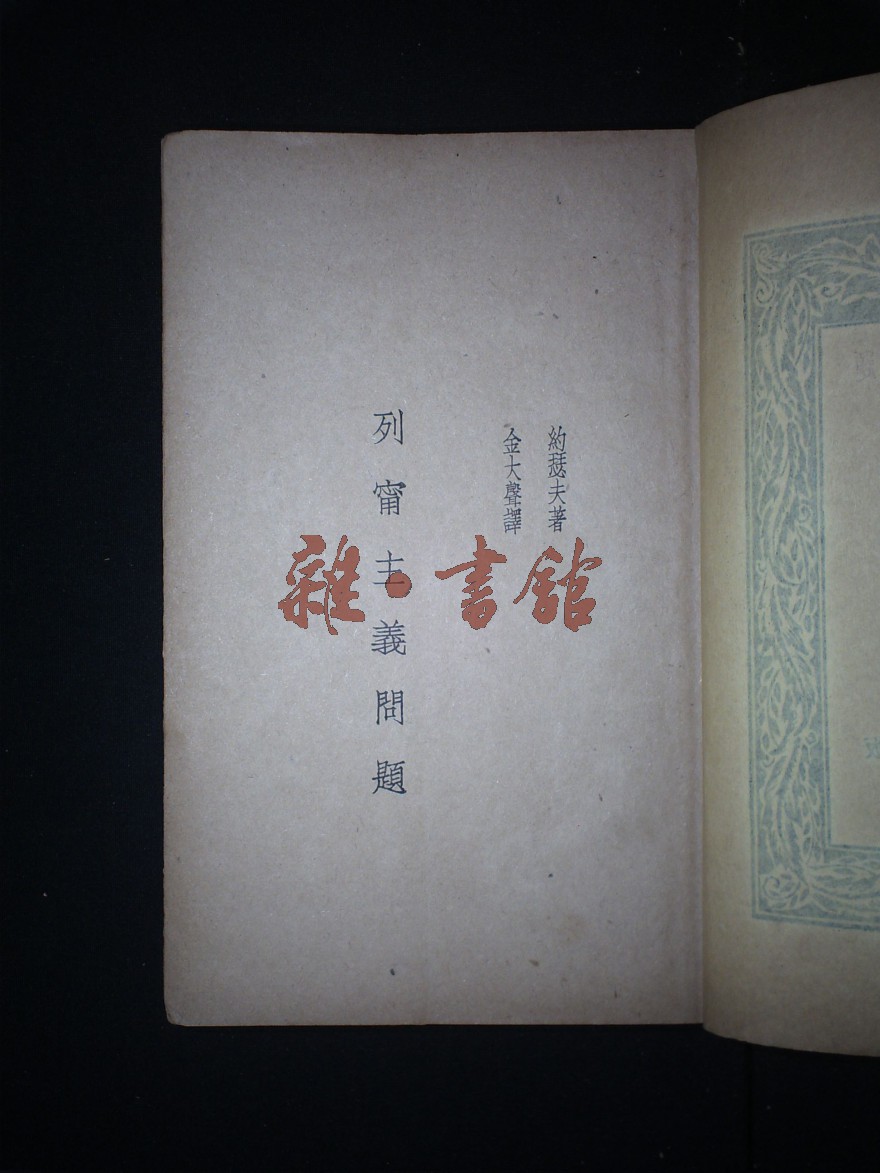 約瑟夫著
金大聲譯
列甯主義問題
雜·書館